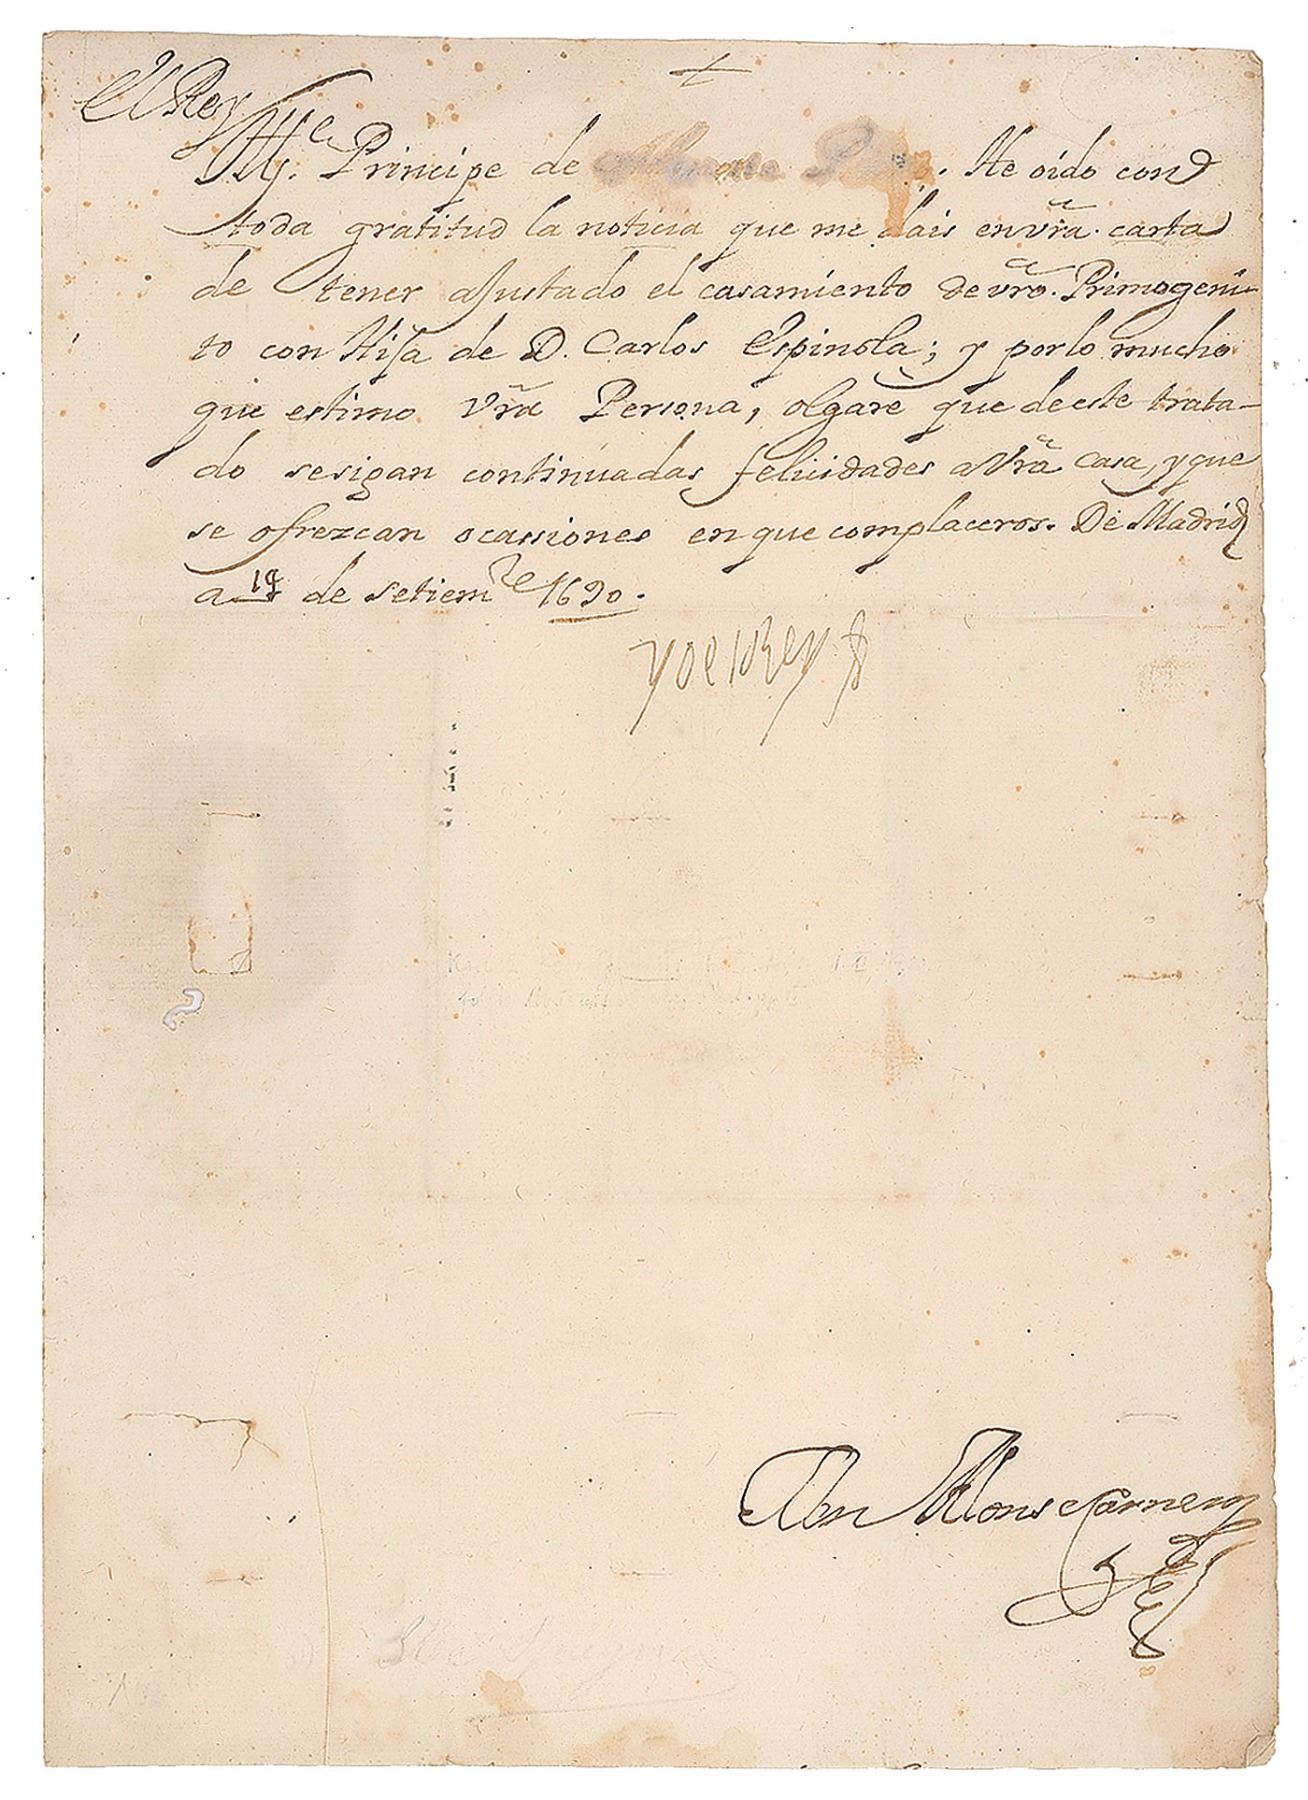 El Rey
Ill.e Principe de . He oido con
toda gratitud la noticia que me dais en vrã. carta
de tener ajustado el casamiento de vrõ. Primogeni-
to con Hija de D. Carlos Espinola; y por lo mucho
que estimo Vrã Persona, olgarè que de este trata-
do se sigan continuadas felicidades a Vrã Casa, y que
se ofrezcan ocassiones en que complaceros. De Madrid
a de Setiembre 1690.
Yo el Rey
Don Alonso Carnero